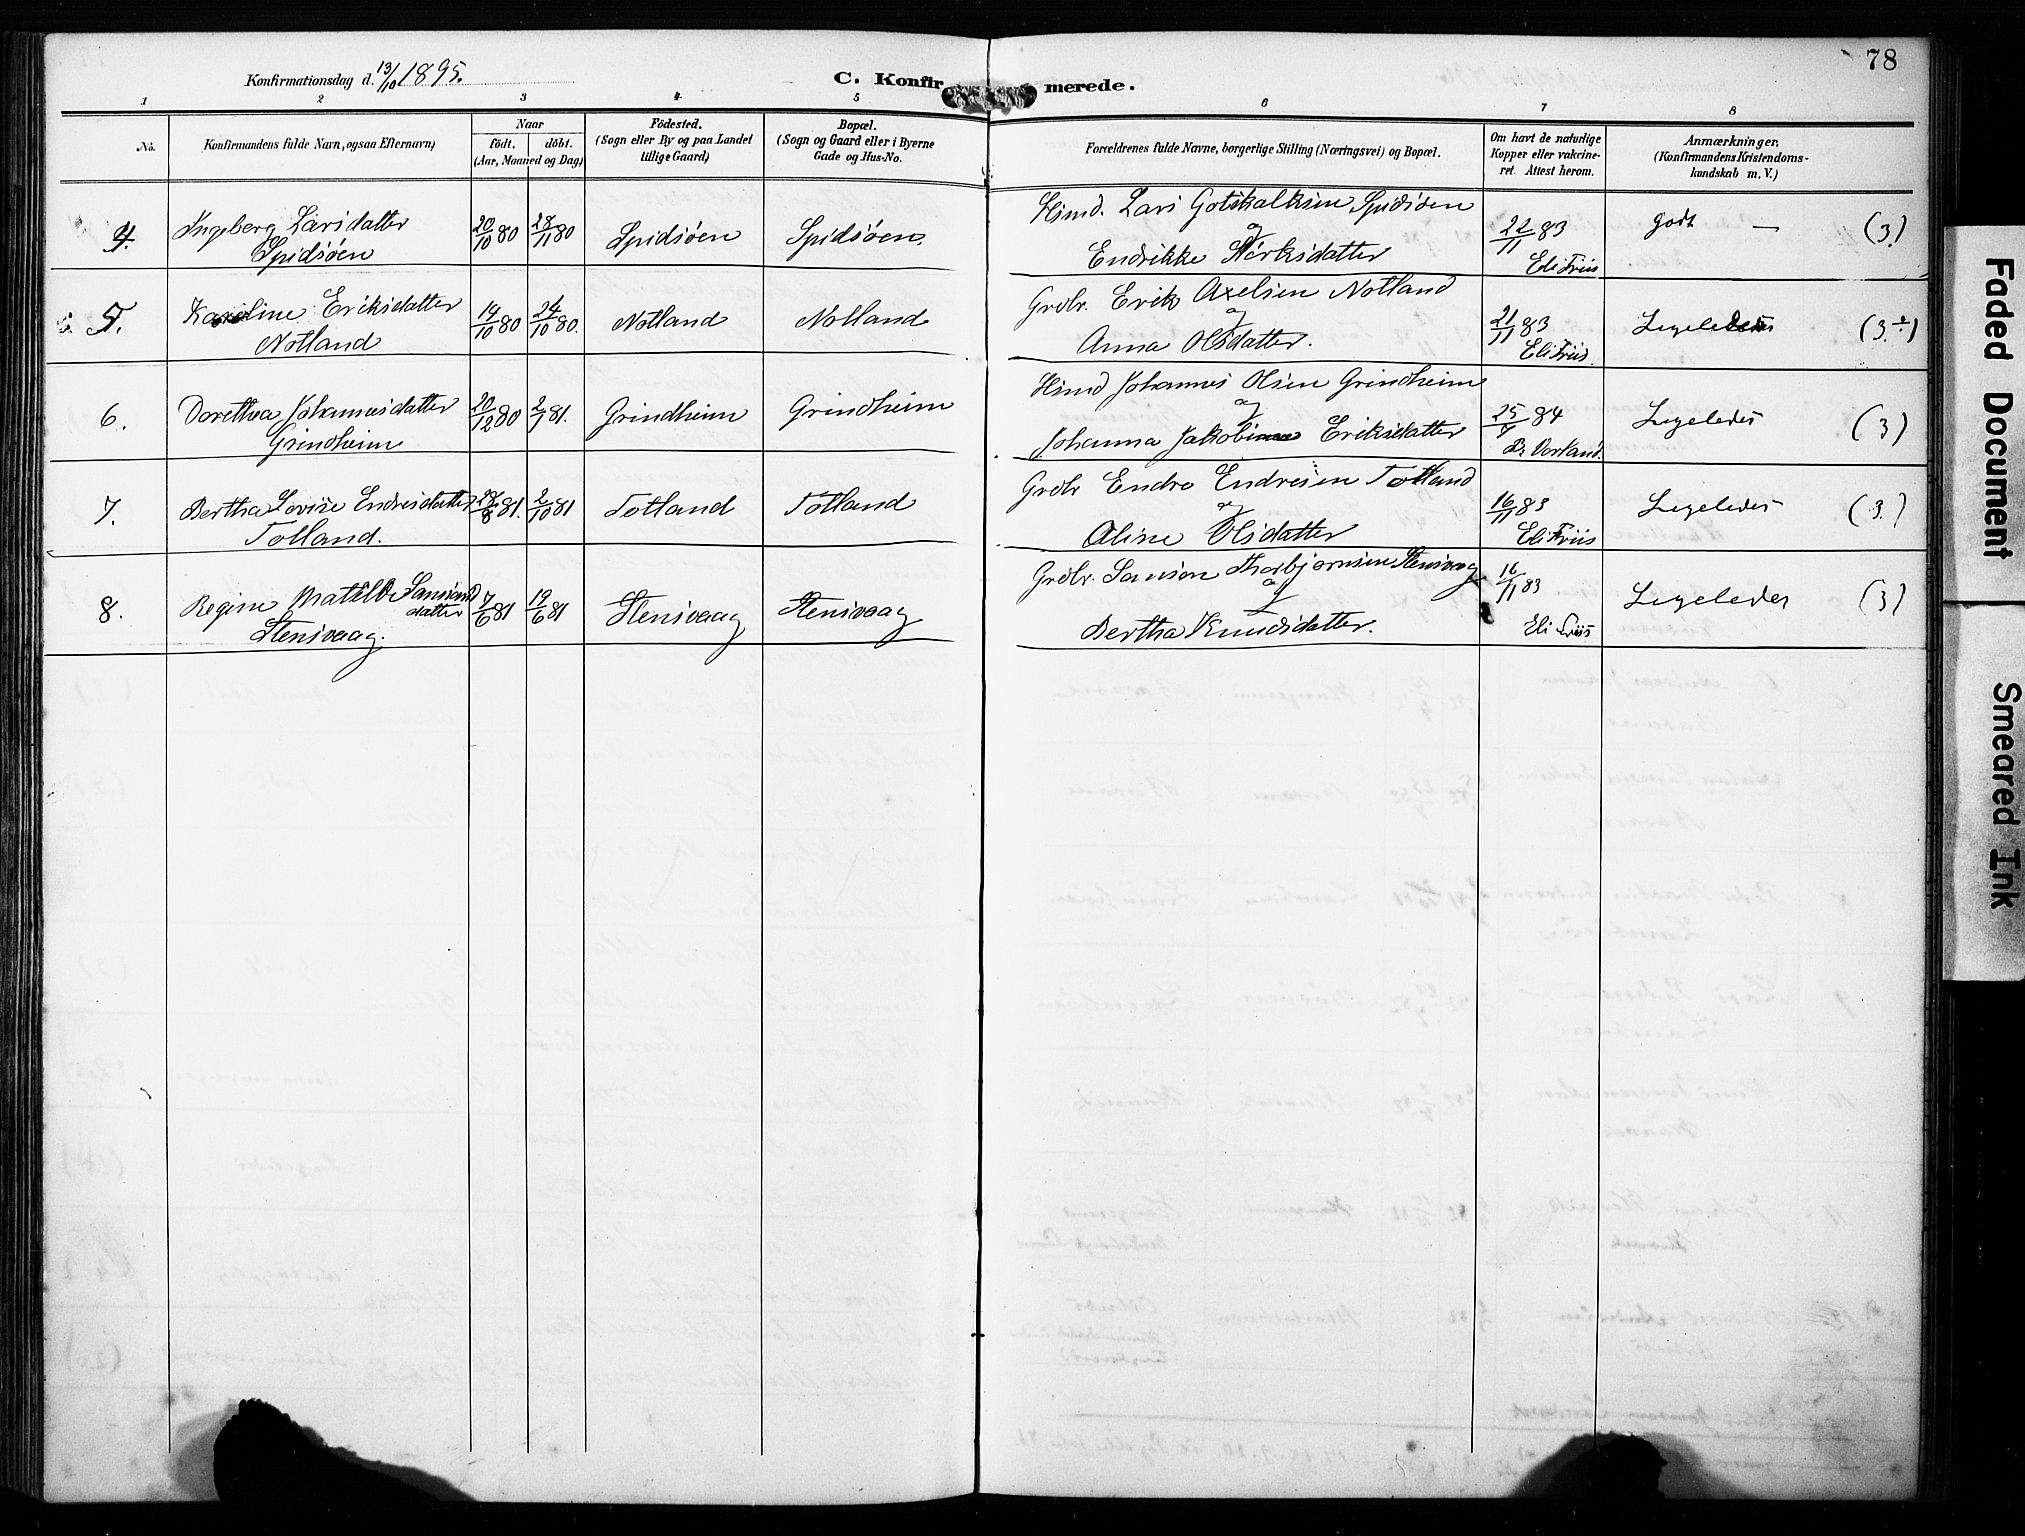 78
Konfirmationsdag d. 13/10 1895.
C. Konfirmerede.
1 2 3 4 5 6 7 8
No.
Konfirmandens fulde Navn, ogsaa Efternavn)
Naar
födt. döbt.
(Aar, Maaned og Dag)
Födested.
(Sogn eller By og paa Landet
tillige Gaard)
Bopæl.
(Sogn og Gaard eller i Byerne
Gade og Hus-No.
Forældrenes fulde Navne, borgerlige Stilling (Næringsvei) og Bopæl.
Om havt de naturlige
Kopper eller vakcine-
ret. Attest herom.
Anmærkninger.
(Konfirmandens Kristendoms-
kundskab m. V.)
4. Ingeberg Larsdatter
Spidsöen
20/10 80 28/11 80 Spidsöen Spidsöen.
Hsmd. Lars Gotskalksen Spidsöen
og
Endrikke Størksdatter
22/11 83
Eli Friis
godt — (3.)
5. Karoline Eriksdatter
Notland
14/10 80 24/10 80. Notland Notland
Grdbr. Erik Axelsen Notland
og
Anna Olsdatter.
21/11 83
Eli Friis.
Ligeledes (3.÷)
6. Dorethea Johannesdatter
Grindheim
20/12 80 2/1 81. Grindheim Grindheim
Hsmd Johannes Olsen Grindheim
og
Johanna Jakobine Eriksdatter
25/7 84
B. Vorland.
Ligeledes (3)
7. Bertha Lovise Endresdatter
Totland.
28/8 81. 2/10 81 Totland Totland
Grdbr Endre Endresen Totland
og
Aline Olsdatter
16/11 83
Eli Friis
Ligeledes (3.)
8. Regine Matilde Samsons
datter
Stensvaag.
7/6 81 19/6 81 Stensvaag Stensvaag
Grdbr. Samson Thorbjørnsen Stensvaag
og
Bertha Knudsdatter.
16/11 83
Eli Friis
Ligeledes (3)
Faded Document
Smeared Ink